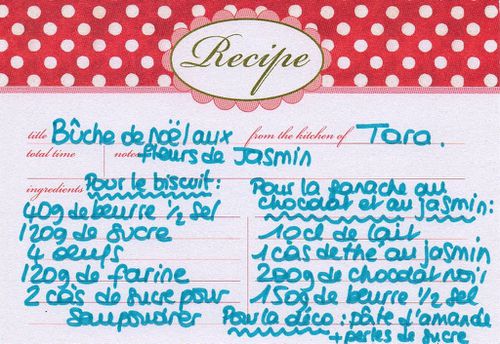 Recipe
title Bûche de Noël aux from the kitchen of Tara.
total time notes fleurs de Jasmin
ingredients Pour le biscuit:
40g de beurre 1/2 sel
120g de sucre
4 oeufs
120g de farine
2 càs de sucre pour
saupoudrer
Pour la panache au
chocolat et au jasmin:
10cl de lait
1 càs de thé au jasmin
200g de chocolat noir
150g de beurre 1/2 sel
Pour la déco : pâte d'amande
+ perles de sucre